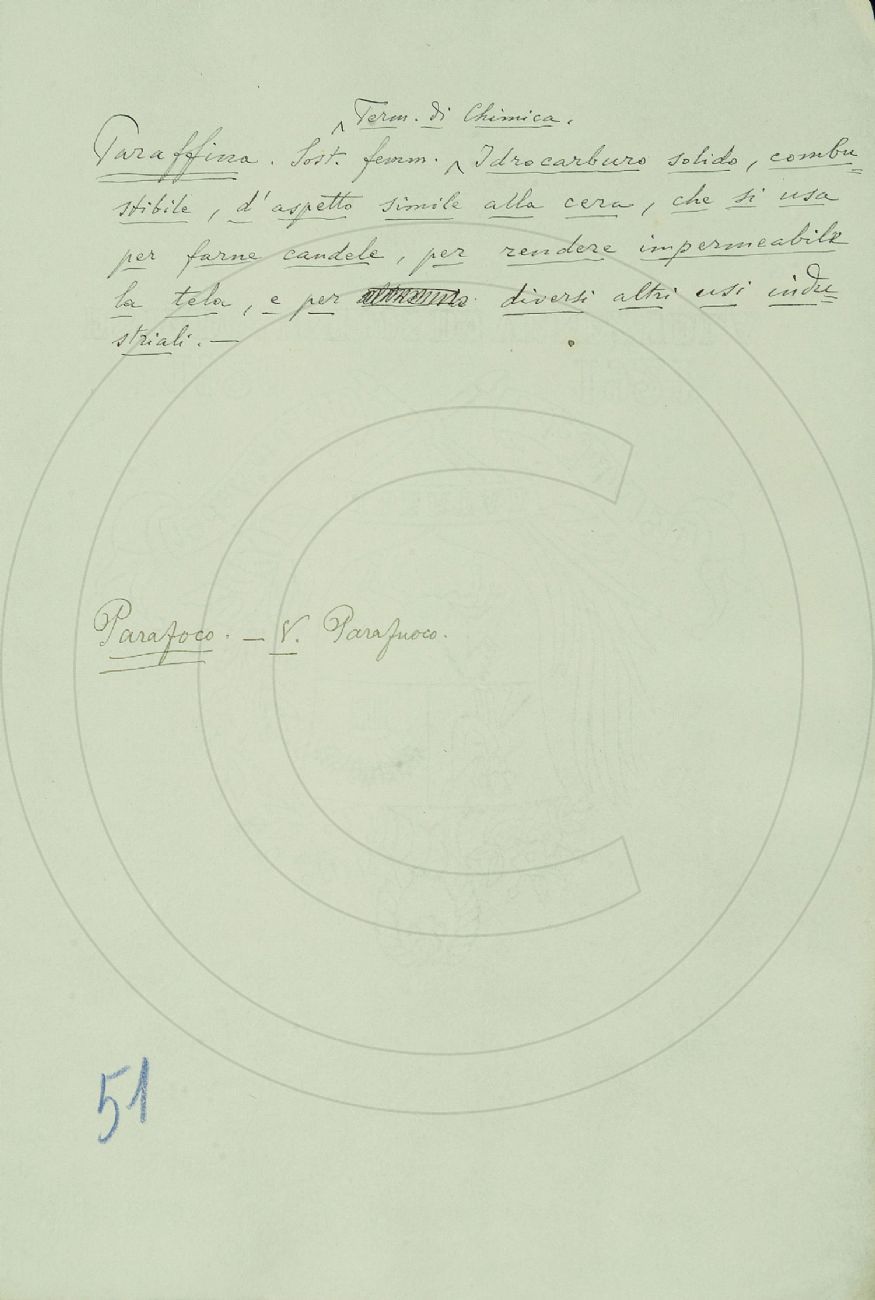 Term. di Chimica.
Paraffina. Sost. femm. Idrocarburo solido, combu=
stibile, d'aspetto simile alla cera, che si usa
per farne candele, per rendere impermeabile
la tela, e per diversi altri usi indu=
striali. —
Parafoco. — V. Parafuoco.
51